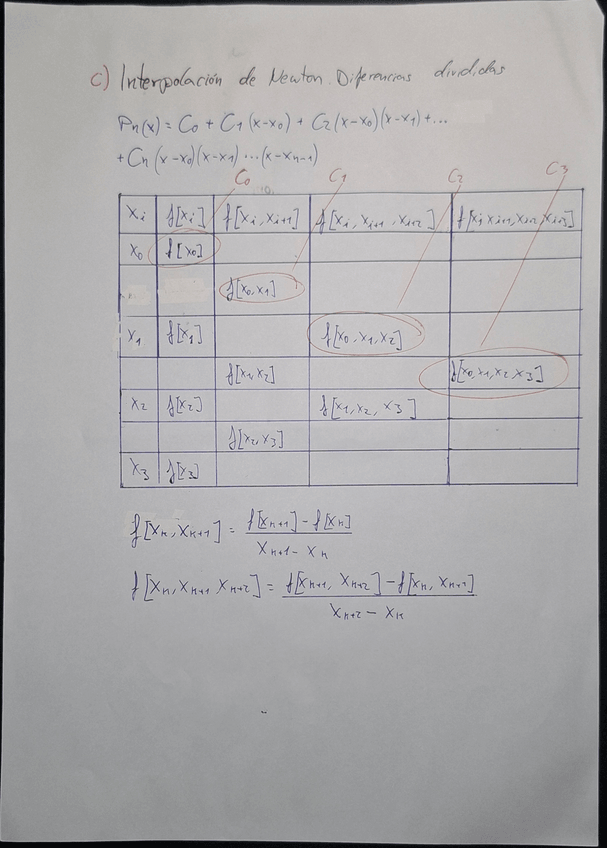 c) Interpolación de Newton. Diferencias divididas
Pn(x) = C0 + C1 (x-x0) + C2 (x-x0)(x-x1) + ...
+ Cn (x-x0)(x-x1) ... (x-xn-1)
C0 C1 C2 C3
xi f[xi] f[xi, xi+1] f[xi, xi+1, xi+2] f[xi, xi+1, xi+2, xi+3]
x0 f[x0]
f[x0, x1]
x1 f[x1] f[x0, x1, x2]
f[x1, x2] f[x0, x1, x2, x3]
x2 f[x2] f[x1, x2, x3]
f[x2, x3]
x3 f[x3]
f[xn, xn+1] = (f[xn+1] - f[xn]) / (xn+1 - xn)
f[xn, xn+1 xn+2] = (f[xn+1, xn+2] - f[xn, xn+1]) / (xn+2 - xn)